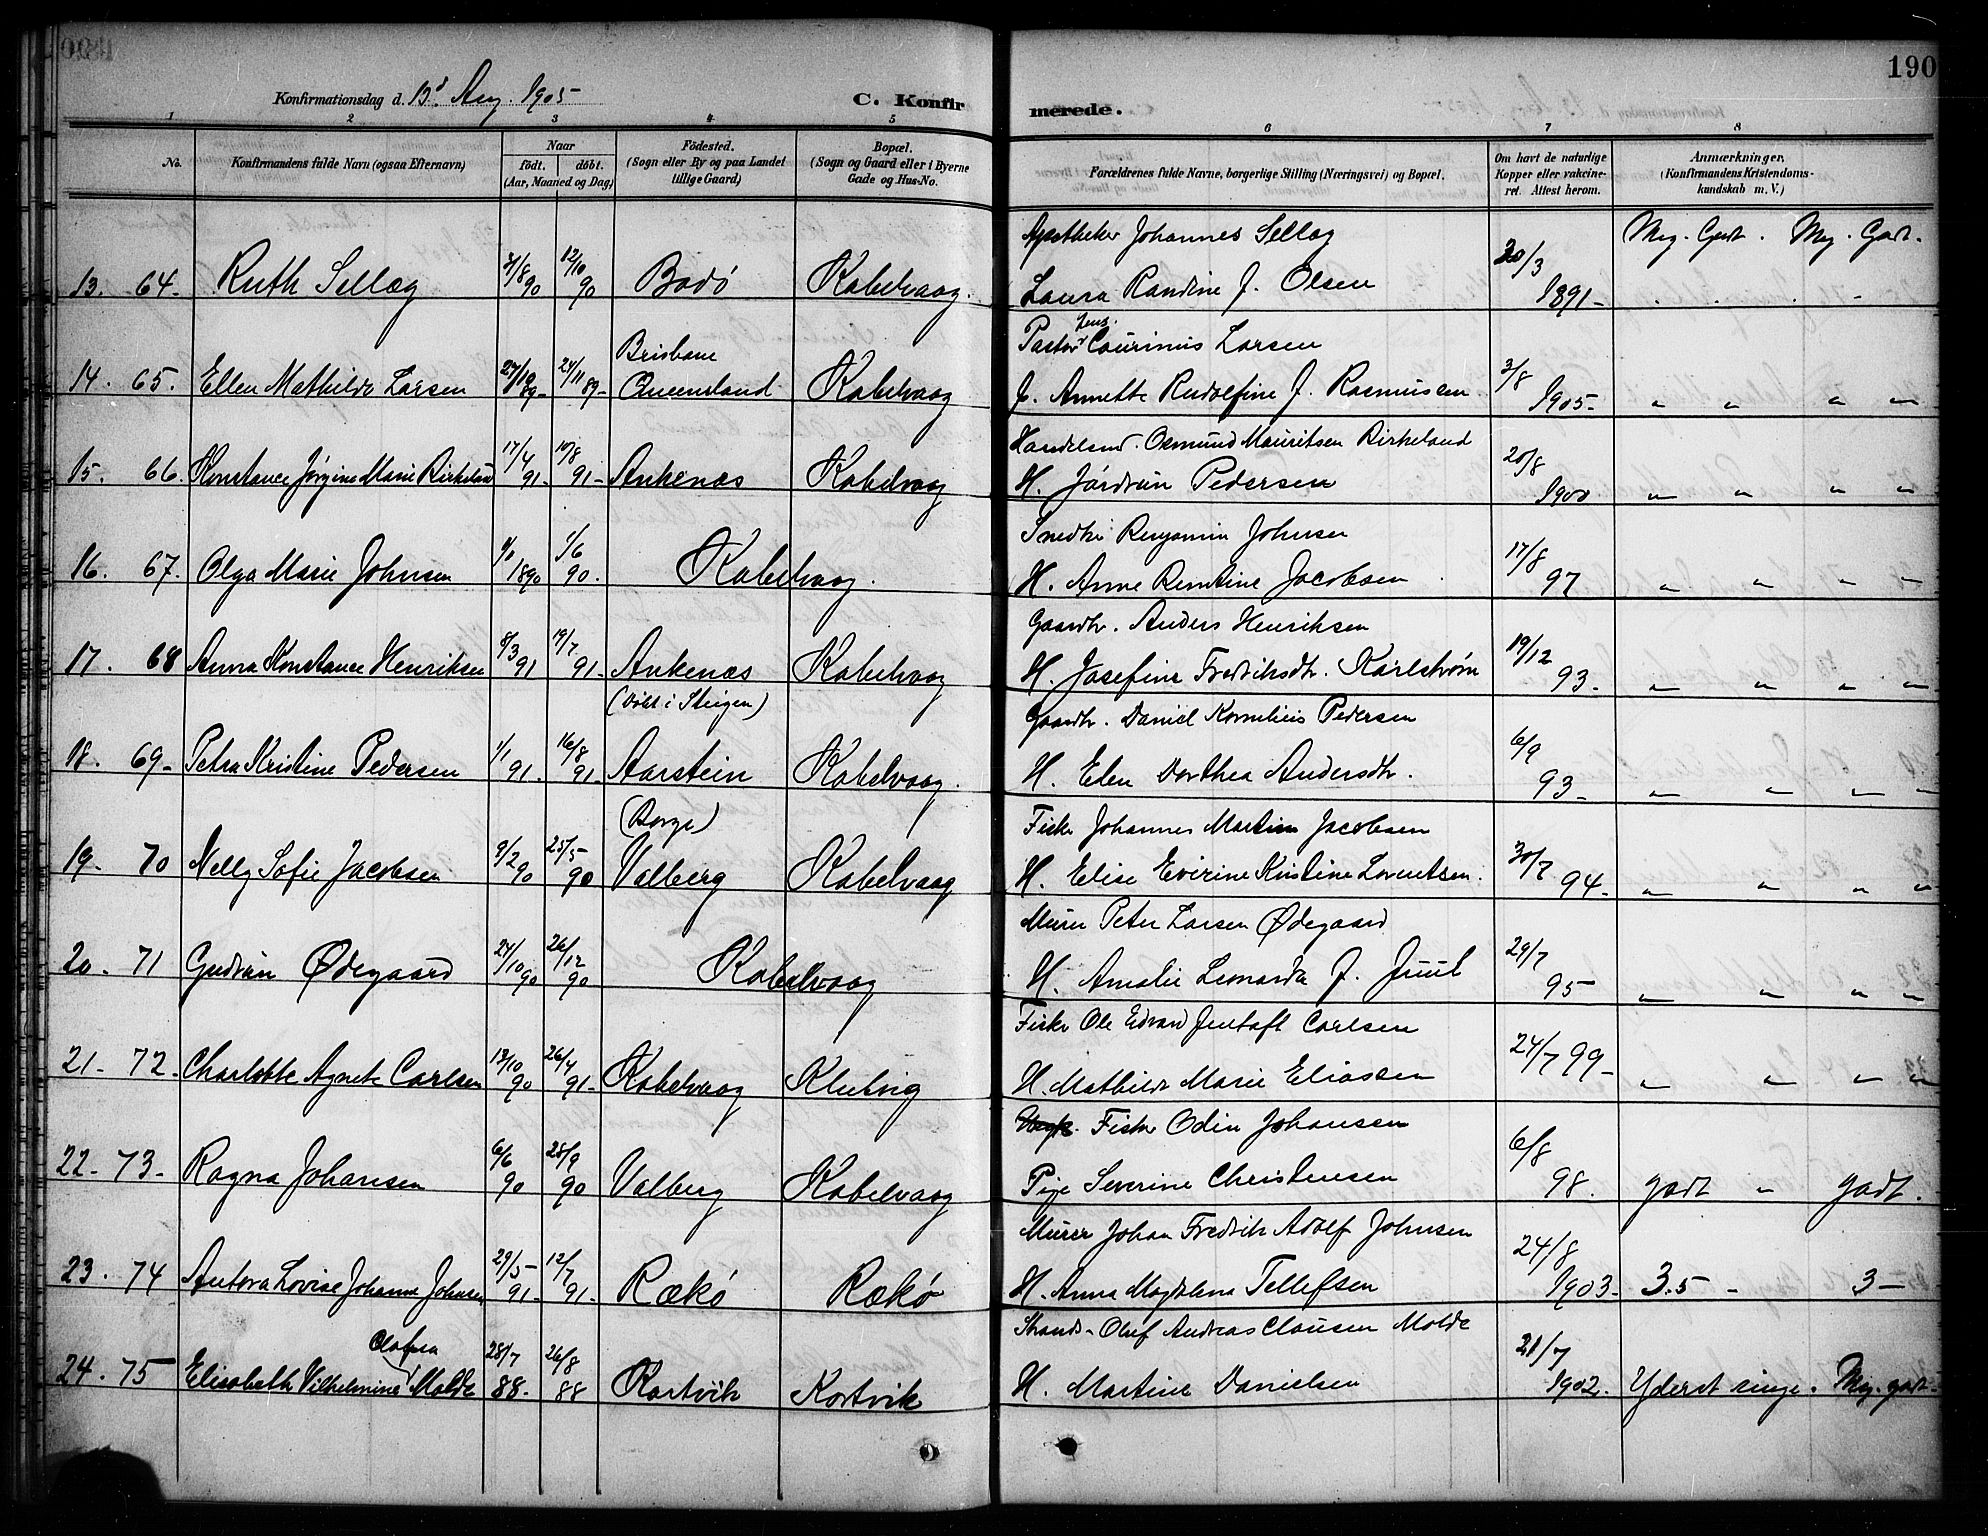 190
Konfirmationsdag d. 13d Aug. 1905
C. Konfirmerede.
1 2 3 4 5 6 7 8
No.
Konfirmandens fulde Navn (ogsaa Efternavn)
Naar
født. døbt.
(Aar, Maaned og Dag)
Fødested.
(Sogn eller By og paa Landet
tillige Gaard)
Bopæl.
(Sogn og Gaard eller i Byerne
Gade og Hus-No.
Forældrenes fulde Navne, borgerlige Stilling (Næringsvei) og Bopæl.
Om havt de naturlige
Kopper eller vakcine-
ret. Attest herom.
Anmærkninger,
(Konfirmandens Kristendoms-
kundskab m. V.)
Apotheker Johannes Sellæg Meg. Godt. Meg. Godt.
13. 64. Ruth Sellæg 31/8 90 12/10 90 Bodø Kabelvaag. Laura Randine f. Olsen 20/3 1891-
Pastor Jens Laurinius Larsen
14. 65. Ellen Mathilde Larsen 27/10 89- 24/11 89- Brisbane Queensland Kabelvaag f. Annette Rudolfine f. Rasmussen 3/8 1905- " " " "
Handelsmd. Osmund Mauritsen Birkeland
15. 66. Konstance Jørgine Marie Birkeland 17/4 91- 10/8 91- Ankenæs Kabelvaag H. Jórdrun Pedersen 20/8 1900 " " " "
Snedker Benjamin Johnsen
16. 67. Olga Marie Johnsen 1/1 1890 1/6 90. Kabelvaag. H. Anne Berntine Jacobsen 17/8 97 " " " "
Gaardbr. Anders Henriksen
17. 68 Anna Konstance Henriksen 8/3 91 19/7 91- Ankenæs (døbt i Steigen) Kabelvaag H. Josefine Fredriksdtr. Karlstrøm 19/12 93- " " " "
Gaardbr. Daniel Kornelius Pedersen
18. 69- Petra Kristine Pedersen 1/1 91. 16/8 91 Aarstein Kabelvaag. H. Elen Dorthea Andersdtr. 6/9 93- " " " "
Fisker Johannes Martin Jacobsen
19- 70 Nelly Sofie Jacobsen 9/2 90 25/5- 90 (Borge) Valberg Kabelvaag H. Elise Evirine Kristine Lorentsen. 30/7 94- " " " "
Murer Peter Larsen Ødegaard
20. 71 Gudrun Ødegaard 24/10 90 26/12 90 Kabelvaag H. Amalie Leonarda f. Juul 29/7 95- " " " "
Fisker Ole Edvard Jentoft Carlsen
21- 72. Charlotte Agnete Carlsen 13/10 90 26/4 91- Kabelvaag H. Mathilde Marie Eliassen 24/7 99- " " " "
Fisker Odin Johansen
22- 73- Ragna Johansen 6/6 90 28/9 90 Valberg Kabelvaag Pige Severine Christensen 6/8 98. godt " godt.
Murer Johan Fredrik Adolf Johnsen
23. 74 Antora Lovise Johanne Johnsen 29/5- 91- 12/7 91- Rækø Rækø H. Anna Magdalena Tellefsen 24/8 1903- 3.5 - 3-
Strands. Oluf Andreas Clausen Molde
24. 75 Elisabeth Vilhelmine Olafsea Molde 28/7 88- 26/8 88 Kortvik Kortvik H. Martine Danielsen 21/7 1902. Yderst ringe. Meg. godt-